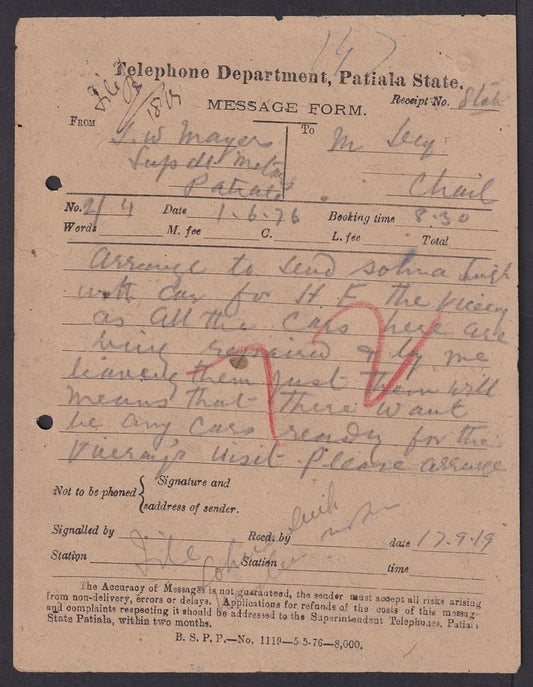 147
Telephone Department, Patiala State.
File
18/5
MESSAGE FORM.
Receipt No. State
FROM
To
J. W. Mayers
Supdt Motors
Patiala
M Secy
Chail
No. 2/4 Date 1.6.76 Booking time 8.30
Words M. fee C. L. fee Total
Arrange to send Sohna Singh
with car for H. E. the Viceroy
as all the cars here are
being repaired & by me
leaving them just them will
means that there wont
be any cars ready for the
Viceroy's visit Please arrange
Not to be phoned { Signature and
address of sender.
Signalled by Recd. by date 17.9.19
File
Station Station time
The Accuracy of Messages is not guaranteed, the sender must accept all risks arising
from non-delivery, errors or delays. Applications for refunds of the costs of this messag
and complaints respecting it should be addressed to the Superintendent Telephones, Patial
State Patiala, within two months.
B. S. P. P.—No. 1119—5-5-76—8,000.